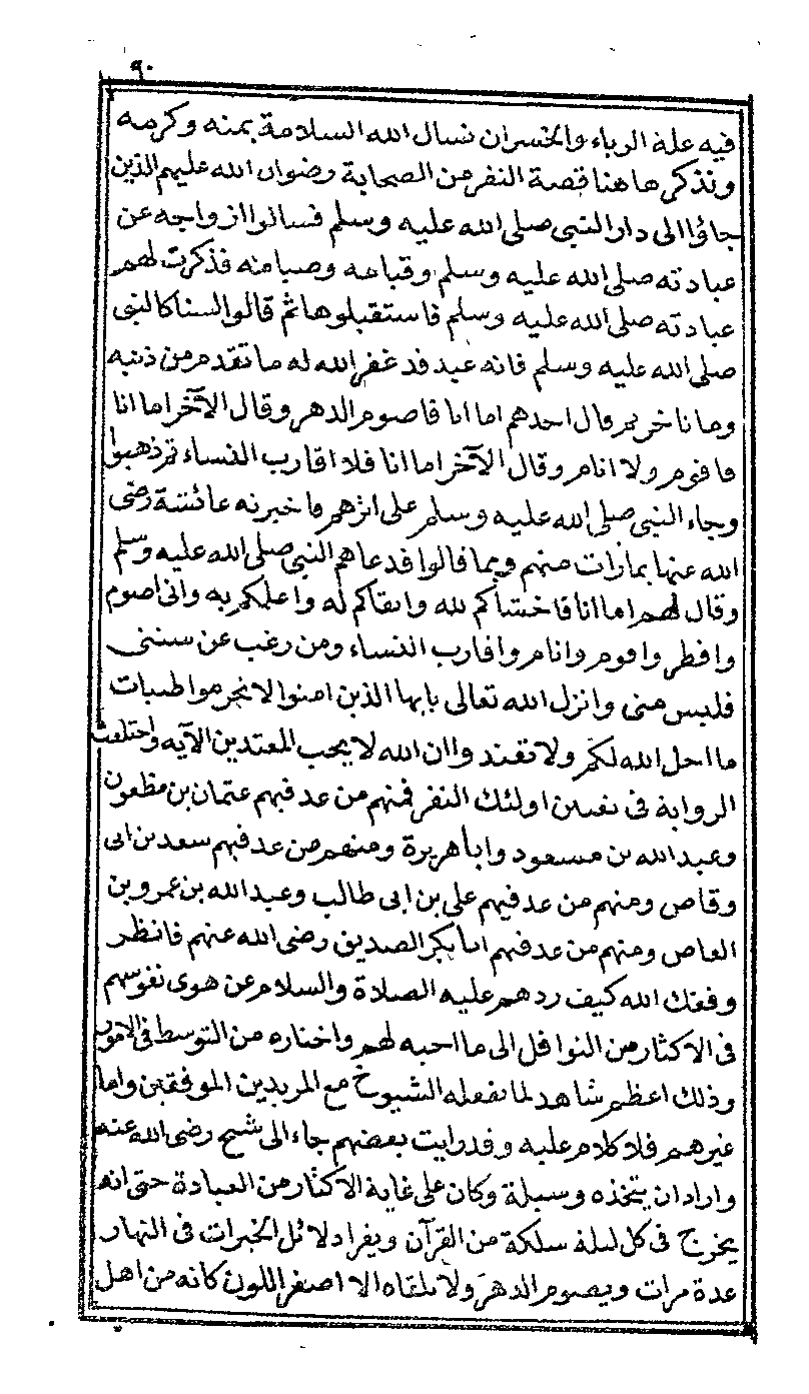 ٩٠
فيه علة الرياء والخسران نسال الله السلامة بمنه وكرمه
ونذكر هاهنا قصة النفر من الصحابة رضوان الله عليهم الذين
جاؤا الى دار النبى صلى الله عليه وسلم فسالوا ازواجه عن
عبادته صلى الله عليه وسلم وقيامه وصيامه فذكرت لهم
عبادته صلى الله عليه وسلم فاستقبلوها ثم قالوا السنا كالنبى
صلى الله عليه وسلم فانه عبد قد غفر الله له ما تقدم من ذنبه
وما تاخر ثم قال احدهم اما انا فاصوم الدهر وقال الآخر اما انا
فاقوم ولا انام وقال الآخر اما انا فلا اقارب النساء ثم ذهبوا
وجاء النبى صلى الله عليه وسلم على اثرهم فاخبرته عائشة رضى
الله عنها بما رات منهم وبما قالوا فدعاهم النبى صلى الله عليه وسلم
وقال لهم اما انا فاخشاكم لله واتقاكم له واعلمكم به وانى اصوم
وافطر واقوم وانام واقارب النساء ومن رغب عن سنتى
فليس منى وانزل الله تعالى يايها الذين امنوا لا تحرموا طيبات
ما احل الله لكم ولا تعتدوا ان الله لا يحب المعتدين الآيه واختلفت
الرواية فى تعيين اولئك النفر فمنهم من عد فيهم عثمان بن مظعون
وعبد الله بن مسعود وابا هريرة ومنهم من عد فيهم سعد بن ابى
وقاص ومنهم من عد فيهم على بن ابى طالب وعبد الله بن عمرو بن
العاص ومنهم من عد فيهم ابا بكر الصديق رضى الله عنهم فانظر
وفقك الله كيف ردهم عليه الصلاة والسلام عن هوى نفوسهم
فى الاكثار من النوافل الى ما احبه لهم واختاره من التوسط فى الامور
وذلك اعظم شاهد لما تفعله الشيوخ مع المريدين الموفقين واما
غيرهم فلا كلام عليه وقد رايت بعضهم جاء الى شيخ رضى الله عنه
واراد ان يتخذه وسيلة وكان على غاية الاكثار من العبادة حتى انه
يخرج فى كل ليلة سلكة من القرآن ويقرا دلائل الخيرات فى النهار
عدة مرات ويصوم الدهر ولا تلقاه الا اصفر اللون كانه من اهل